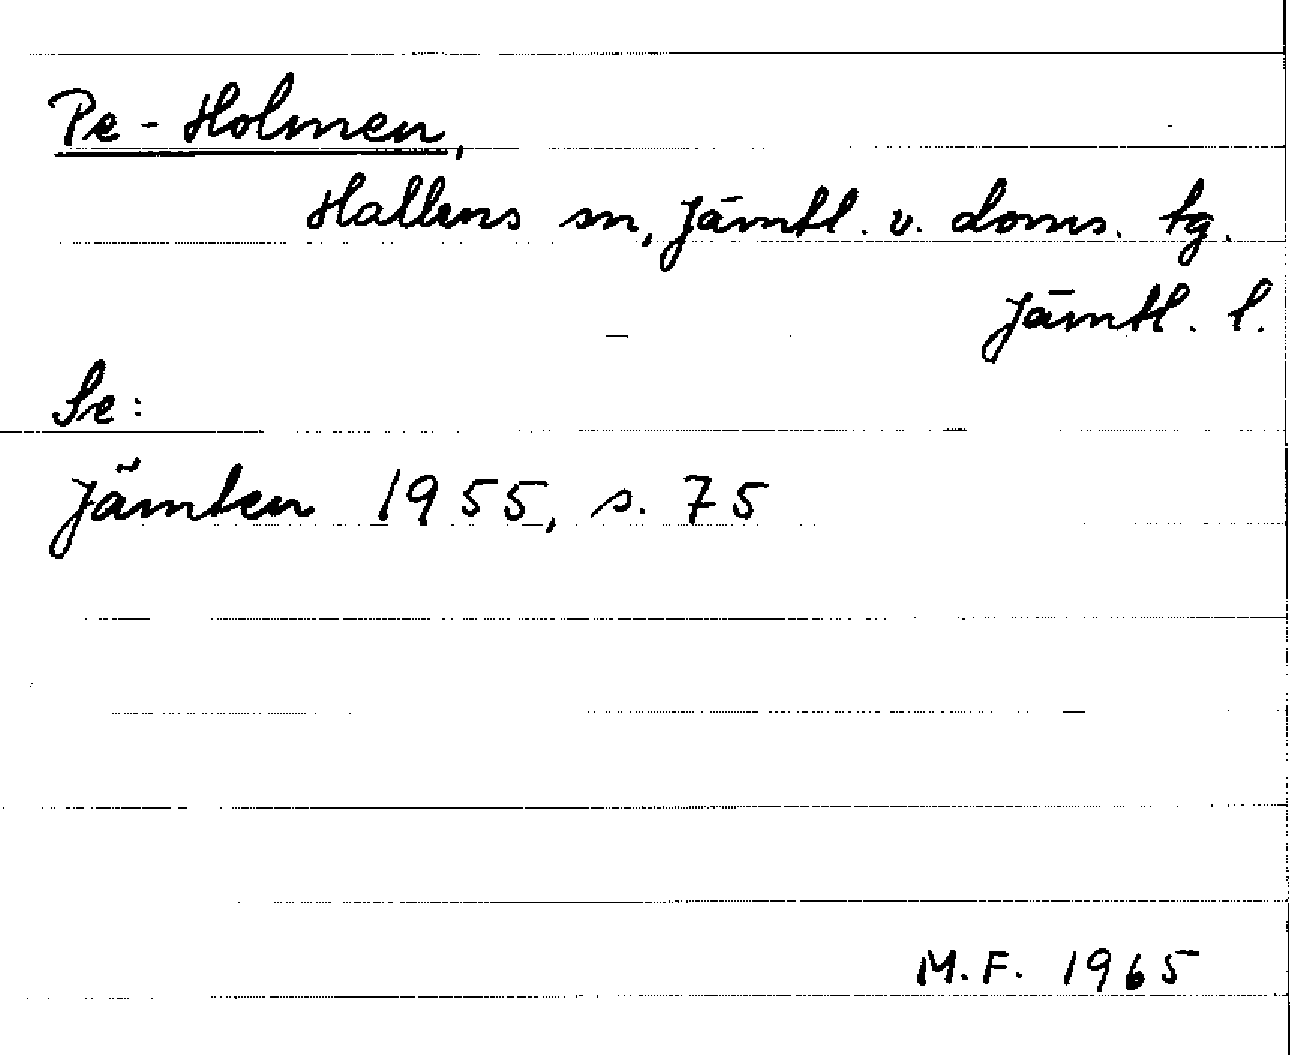 Pe-Holmen,
Hallens sn, Jämtl. v. doms. tg.
Jämtl. l.
Se:
Jämten 1955, s. 75
M.F. 1965